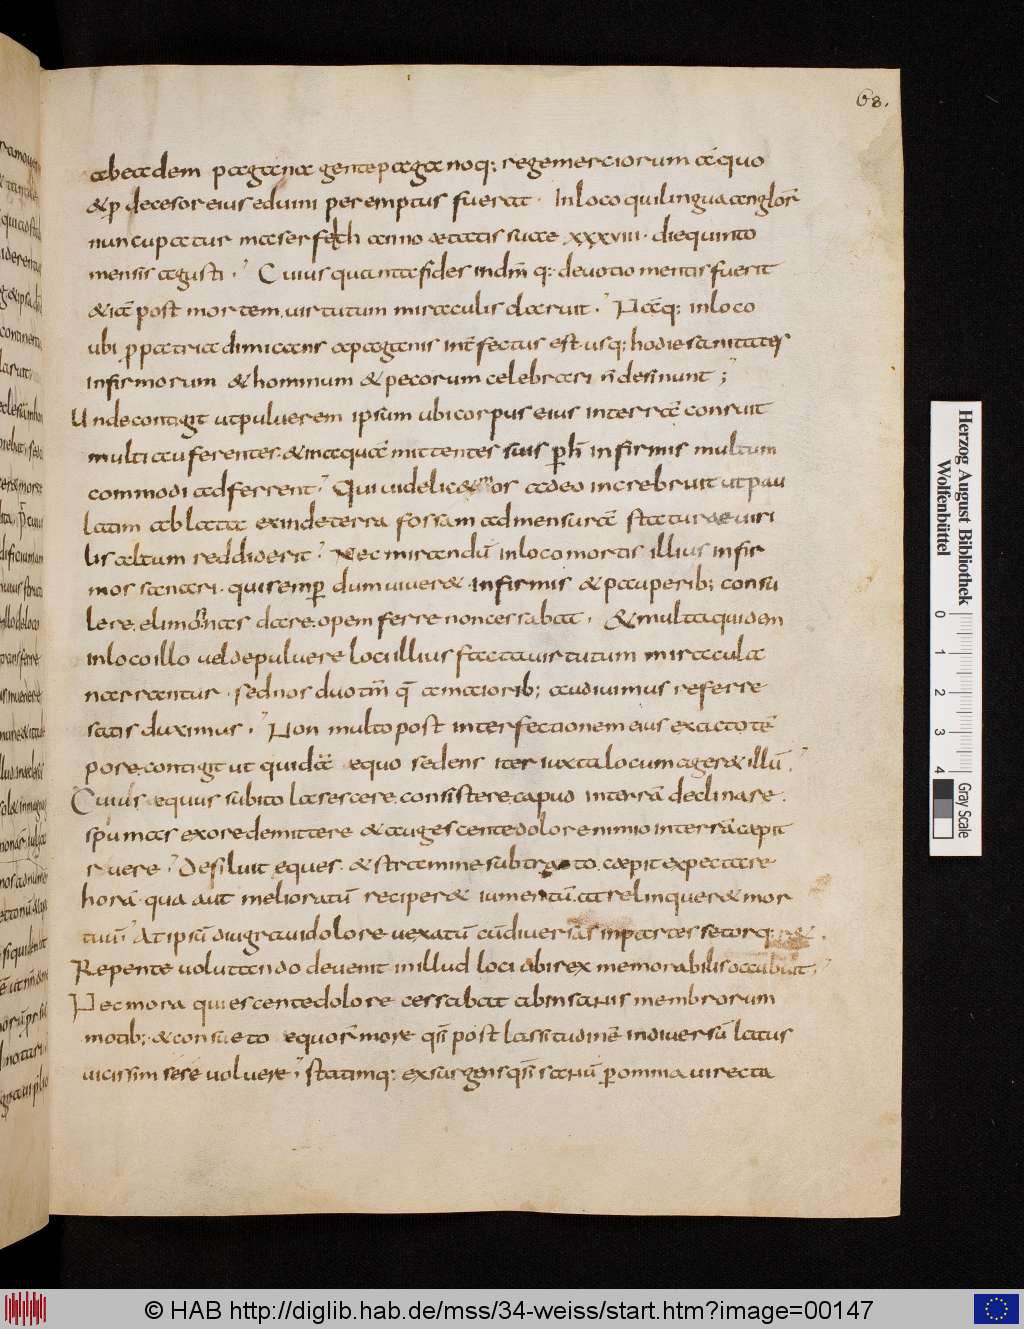 68.
ab eadem pagana gente paganoq; rege merciorum a quo
& p decesor eius eduini peremptus fuerat. In loco qui lingua anglor̄
nuncupatur maserfelth anno aetatis suae xxxviii. die quinto
mensis agusti. Cuius quanta fides in dm̄ q; deuotio mentis fuerit
& iā post mortem, uirtutum miraculis claruit. Nāq; in loco
ubi p patria dimicans a paganis int̄fectus est. usq; hodie sanitates
infirmorum & hominum & pecorum celebrari n̄ desinunt;
Unde contigit ut puluerem ipsum ubi corpus eius in terrā conruit
multi auferentes. & in aquā mittentes suis p h infirmis multum
commodi adferrent. Qui uidelic& mor adeo increbruit ut pau
latim ablata exinde terra fossam ad mensurā staturae uiri
lis altum reddiderit. Nec mirandū in loco mortis illius infir
mos sanari. qui semp dum uiuer& infirmis & pauperib; consu
lere, elimonas dare, opem ferre non cessabat. & multa quidem
in loco illo uel de puluere loci illius facta uirtutum miracula
narrantur. sed nos duo tm̄ q̄ a maiorib; audiuimus referre
satis duximus. Non multo post interfectionem eius exacto tē
pore, contigit ut quidā equo sedens iter iuxta locum ager& illū.
Cuius equus subito lasescere, consistere, caput in terrā declinare.
spumas ex ore demittere & augescente dolore nimio in terrā cępit
ruere. Desiluit eques. & stramine subtracto cæpit expectare
horā. qua aut melioratū reciper& iumentū. aut relinquer& mor
tuū. At ipsū diu graui dolore uexatū cū diuersas in partes se torq;r&.
Repente uolutando deuenit in illud loci ubi rex memorabilis occubuit.
Nec mora quiescente dolore cessabat ab insanis membrorum
motib; & consueto equor̄ more qsi post lassitudinē in diuersū latus
uicissim sese uoluere. statimq; exsurgens qsi sanū p omnia uirecta
Herzog August Bibliothek
Wolfenbüttel
0 1 2 3 4
Gray Scale
© HAB http://diglib.hab.de/mss/34-weiss/start.htm?image=00147